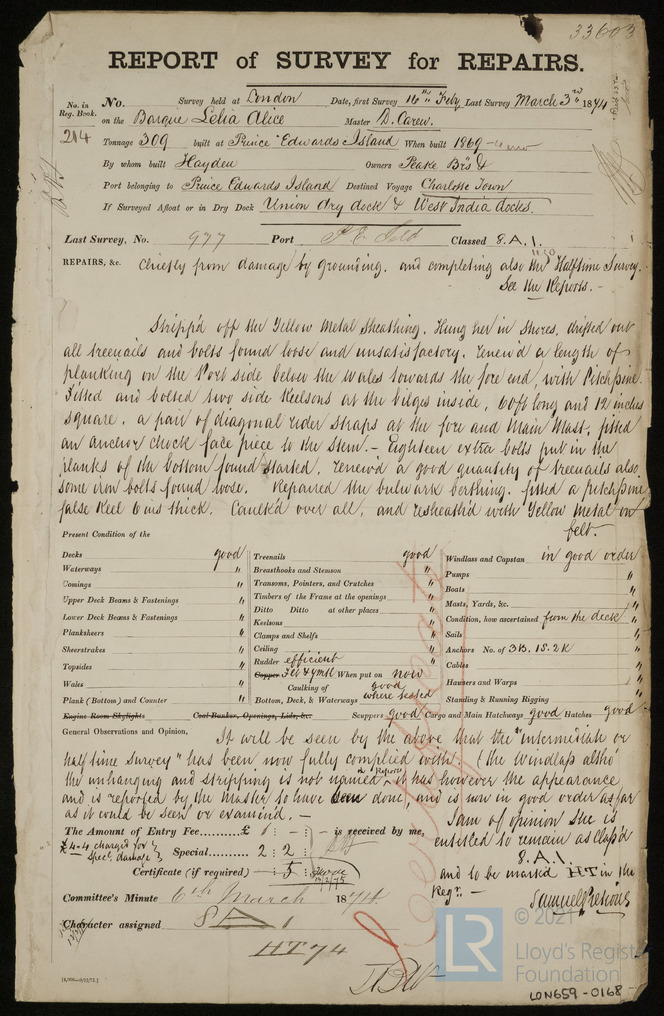 33603
REPORT of SURVEY for REPAIRS.
No. in Reg. Book. No. Survey held at London Date, first Survey 16th Feby Last Survey March 3rd 1874
214 on the Barque Lelia Alice Master D. Carew.
Tonnage 309 built at Prince Edwards Island When built 1869
By whom built Hayden Owners Peake Brs &
Port belonging to Prince Edwards Island Destined Voyage Charlotte Town
If Surveyed Afloat or in Dry Dock Union dry dock & West India docks.
Last Survey, No. 977 Port P. E. Isld Classed 8. A. 1.
REPAIRS, &c. Chiefly from damage by grounding. and completing also the Halftime Survey.
See the Reports. -
Stripp'd off the Yellow Metal Sheathing. Hung her in Shores, drifted out
all treenails and bolts found loose and unsatisfactory. renew'd a length of
planking on the Port side below the Wales towards the fore end, with Pitchpine.
Fitted and bolted two side Keelsons at the bilges inside, 60ft long and 12 inches
square. a pair of diagonal rider straps at the fore and Main Mast, fitted
an anchor chock face piece to the Stem. - Eighteen extra bolts put in the
planks of the bottom found started. renew'd a good quantity of treenails also
some iron bolts found loose. Repaired the bulwark berthing. fitted a pitchpine
false Keel 6 ins thick. Caulk'd over all, and resheath'd with Yellow Metal on
felt.
Present Condition of the
Decks good
Waterways "
Comings "
Upper Deck Beams & Fastenings "
Lower Deck Beams & Fastenings "
Planksheers "
Sheerstrakes "
Topsides "
Wales "
Plank (Bottom) and Counter "
Engine Room Skylights
Treenails good
Breasthooks and Stemson "
Transoms, Pointers, and Crutches "
Timbers of the Frame at the openings "
Ditto Ditto at other places "
Keelsons "
Clamps and Shelfs "
Ceiling "
Rudder efficient
Copper Felt & ymtl When put on now
Caulking of Bottom, Deck, & Waterways good where tested
Coal Bunker, Openings, Lids, &c.
Windlass and Capstan in good order
Pumps "
Boats "
Masts, Yards, &c. "
Condition, how ascertained from the deck
Sails "
Anchors No. of 3B. 1S. 2K "
Cables "
Hausers and Warps "
Standing & Running Rigging "
Scuppers good Cargo and Main Hatchways good Hatches good
General Observations and Opinion, It will be seen by the above that the "intermediate or
half time survey" has been now fully complied with. (the Windlass altho'
the unhanging and stripping is not named in Report it has however the appearance
and is reported by the Master to have been done, and is now in good order as far
as it could be seen or examined. -
I am of opinion she is
entitled to remain as Class'd
8. A. 1.
and to be marked HT in the
Regr. -
Samuel Pretious
The Amount of Entry Fee £ 1 : - : is received by me,
£4-4 charged for Specl damage Special 2 : 2 :
Certificate (if required) - : 5 :
Committee's Minute 6th March 1874
Character assigned 8 A 1
HT 74
© 2021
Lloyd's Register
Foundation
LR
LON659-0168